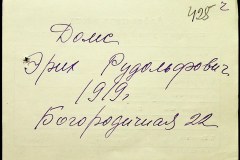 428 г
Домс
Эрих Рудольфович
1919г
Богородичная 22